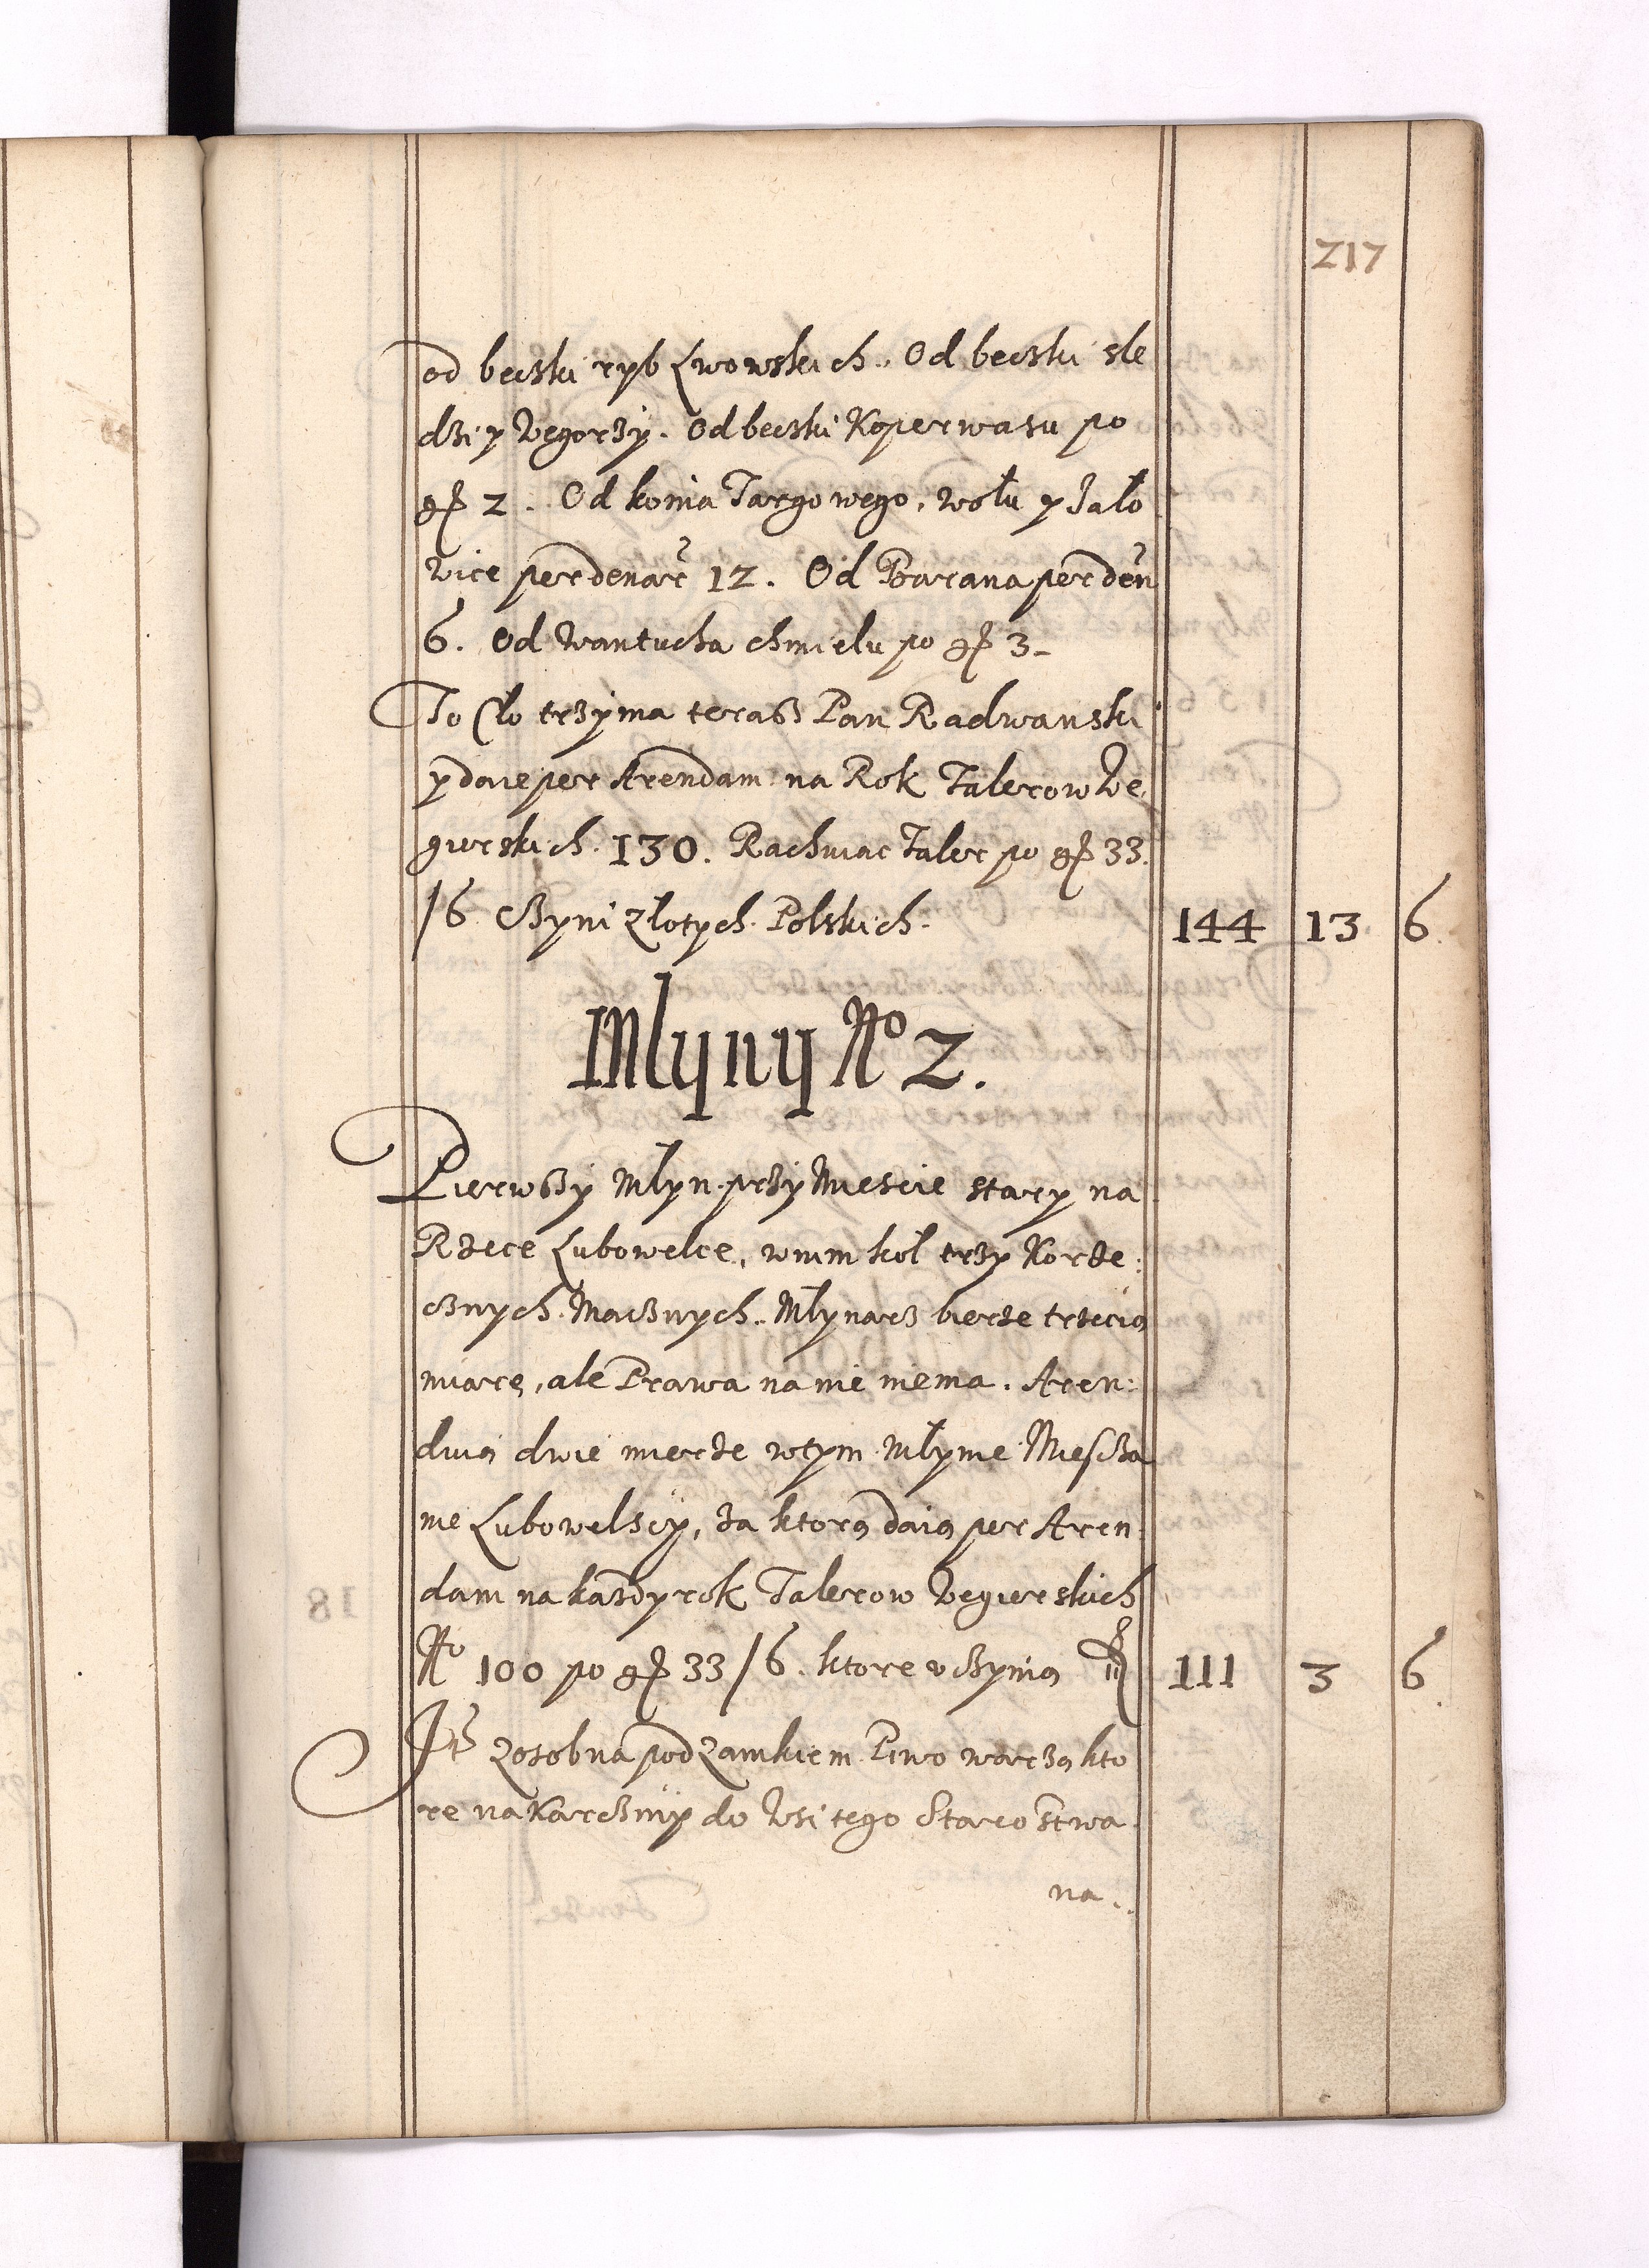 217
od beczki ryb Lwowskich. Od beczki śle
dzi y Węgorzy. Od beczki Koperwasu po
gr 2. Od konia Targowego, wołu y Jało
wice per denar 12. Od Barana per den
6. Od Wantucha chmielu po gr 3.
To Cło trzyma teraß Pan Radwanski
y daie per Arendam na Rok Talerow We
gierskich 130. Rachuiac Taler po gr 33.
/6 Czyni złotych Polskich. 144 13 6
Młyny No 2.
Pierwßy Młyn przy Miescie stary na
Rzece Lubowelce, w nim koł trzy Korze:
cznych Macznych. Młynarz bierze trzecią
miarę, ale Prawa na nie niema. Aren:
duią dwie mierze w tym Młynie Miescza
nie Lubowelscy, za ktorą daią per Aren
dam na każdy rok Talerow Węgierskich
No 100 po gr 33/6. ktore uczynią fl 111 3 6
It zosobna pod Zamkiem Piwo warzą kto
re na Karczmy do Wsi tego Starostwa
na.